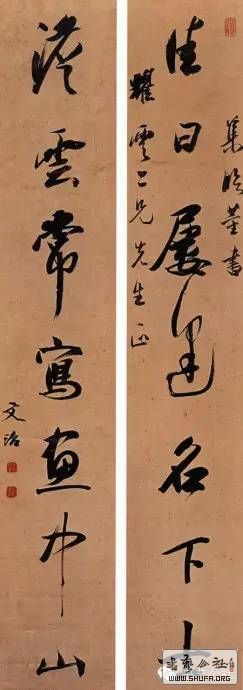 集臨董書
佳日屢逢名下士
耀雲二兄先生正
淡雲常寫畫中山
文治
書藝公社
WWW.SHUFA.ORG